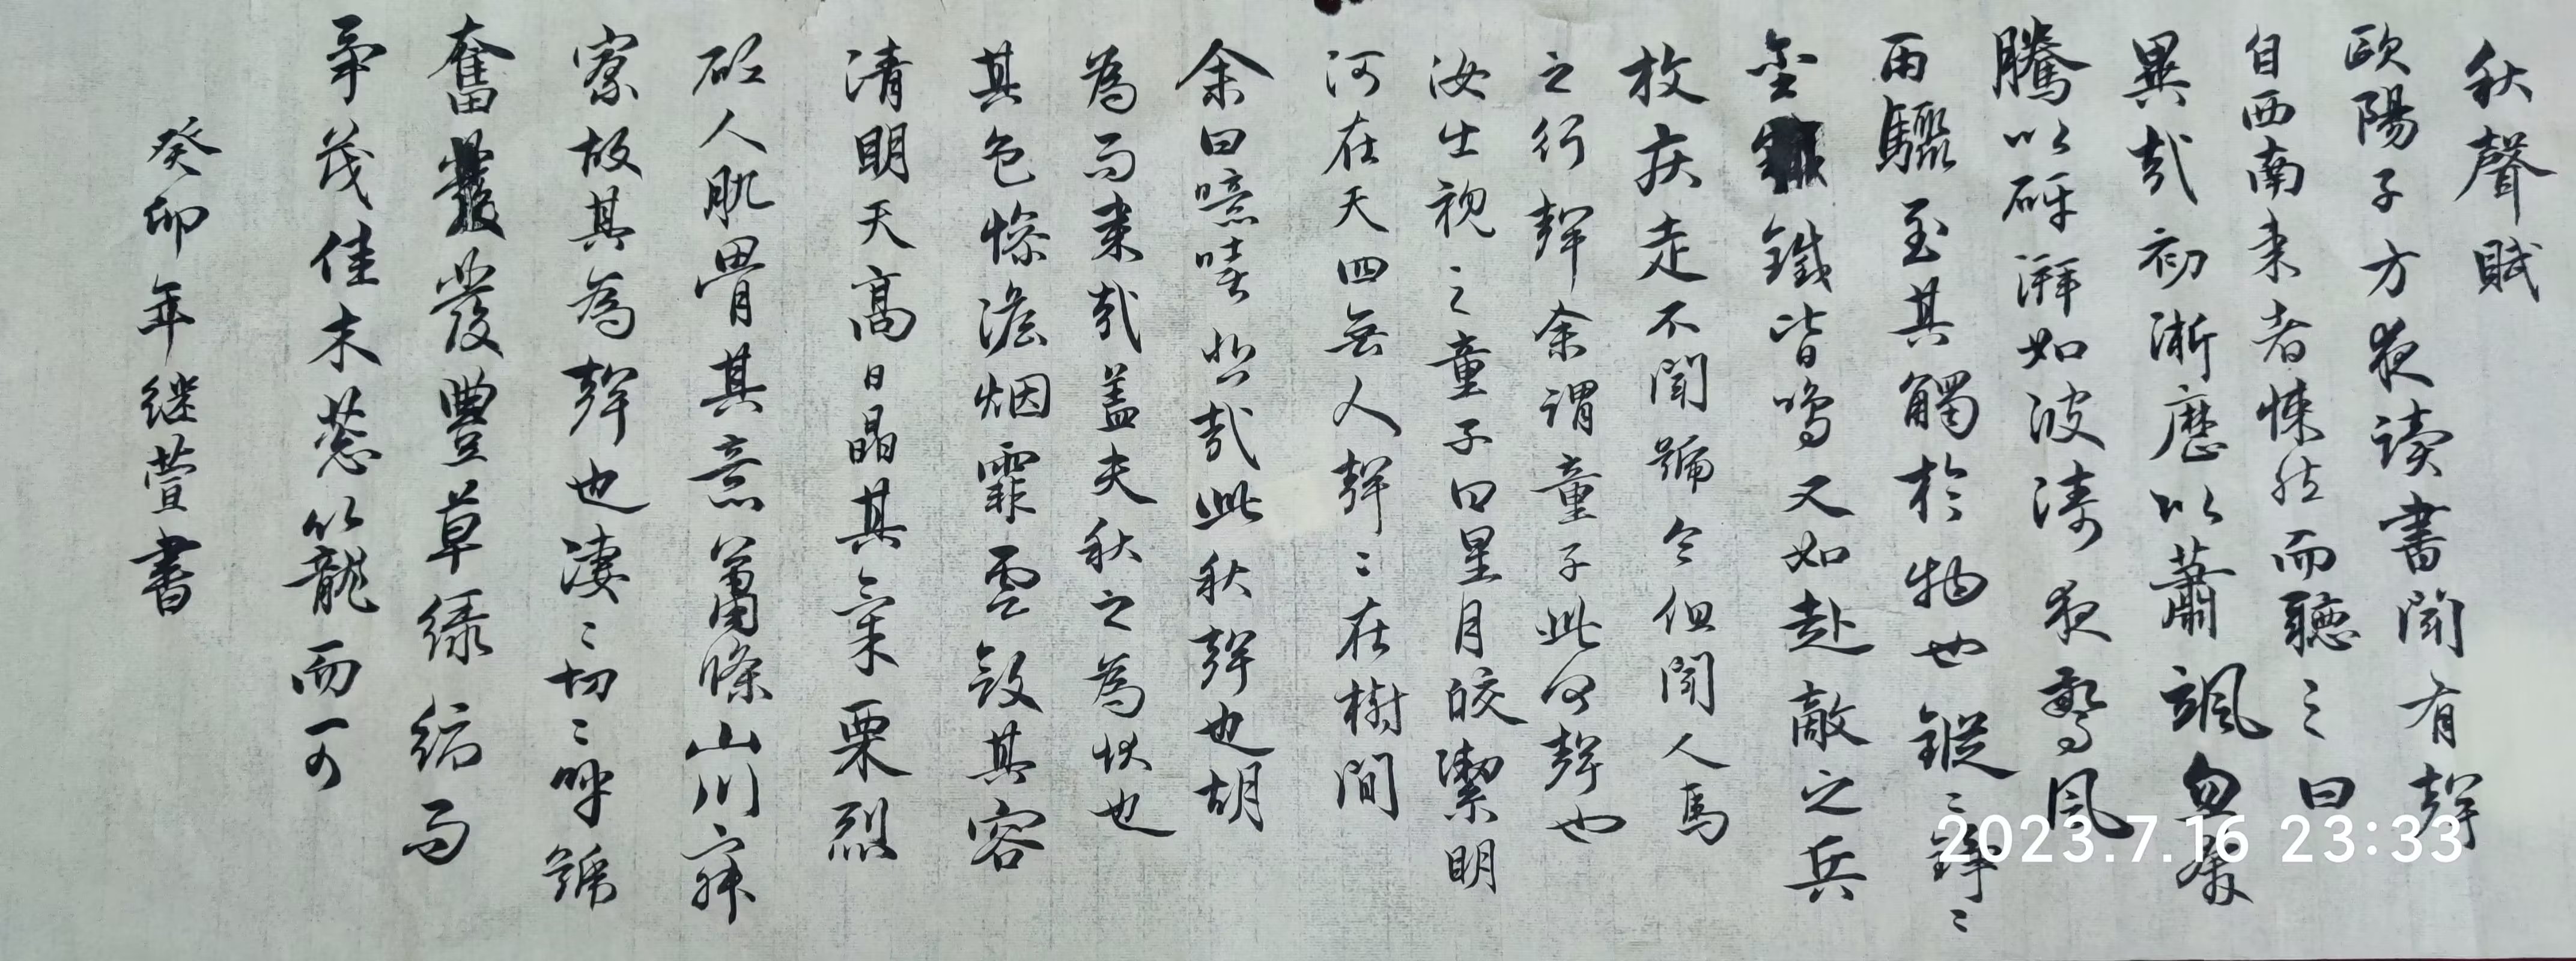 秋聲賦
歐陽子方夜读書聞有聲
自西南来者悚然而聽之曰
異哉初淅歷以蕭颯忽奔
騰以砰湃如波濤夜驚風
雨驟至其觸於物也鏦〻錚〻
金鐵皆鳴又如赴敵之兵
枚疾走不聞號令但聞人馬
之行聲余謂童子此何聲也
汝出視之童子曰星月皎潔明
河在天四無人聲〻在樹間
余曰噫嘻悲哉此秋聲也胡
為而来哉盖夫秋之為状也
其色惨澹烟霏雲斂其容
清明天高日晶其氣栗烈
砭人肌骨其意蕭條山川寂
寥故其為聲也淒〻切〻呼號
奮發豐草绿縟而
争茂佳木葱籠而可
癸卯年继萱書
2023.7.16 23:33